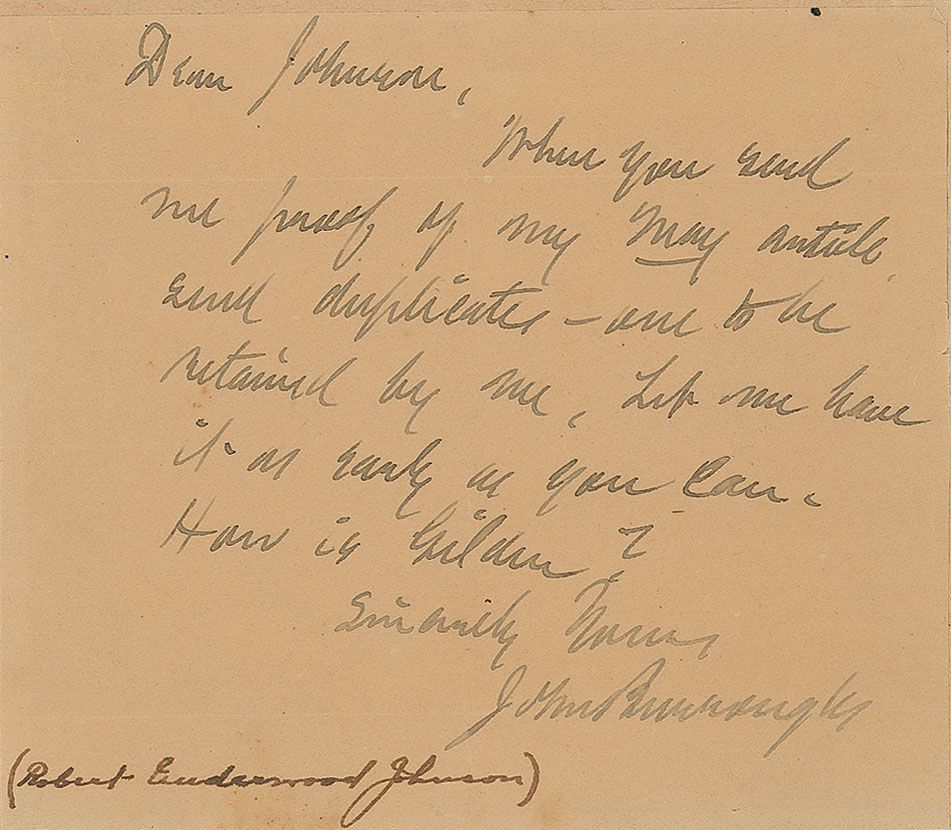 Dear Johnson,
When you send
me proof of my May article
send duplicates – one to be
retained by me, Let me have
it as early as you can.
How is Gilder?
Sincerely Yours
John Burroughs
(Robert Underwood Johnson)